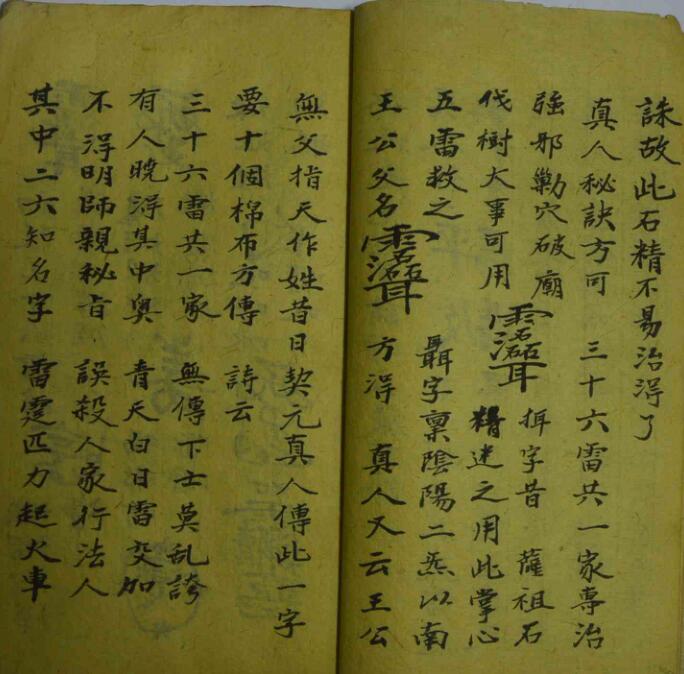 誅故此石精不易治淂了
真人秘訣方可 三十六雷共一家專治
強邪勦穴破廟 揖字昔 薩祖石
伐樹大事可用 精迷之用此掌心
五雷救之 聶字稟陰陽二炁以南
王公父名 方淂 真人又云王公
無父指天作姓昔日契元真人傳此一字
要十個棉布方傳 詩云
三十六雷共一家 無傳下士莫乱誇
有人曉淂其中奥 青天白日雷交加
不淂明師親秘旨 誤殺人家行法人
其中二六知名字 雷霆匹力起火車